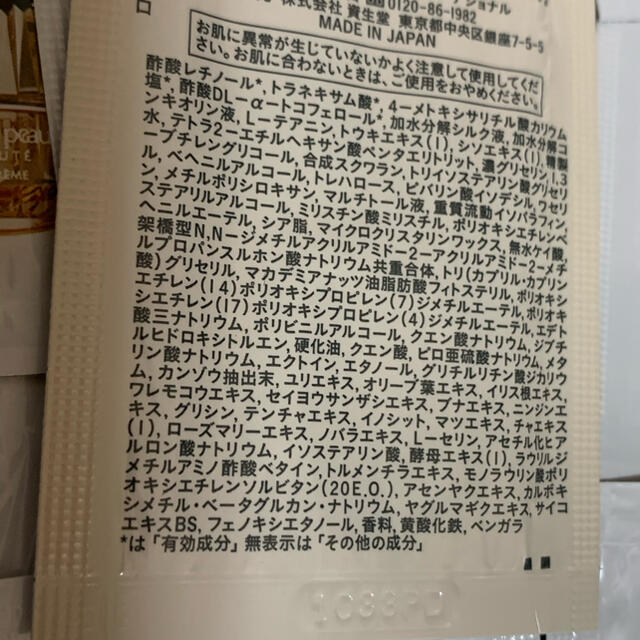 ショナル
口
0120-86-1982
株式会社 資生堂 東京都中央区銀座7-5-5
MADE IN JAPAN
お肌に異常が生じていないかよく注意して使用してくだ
さい。お肌に合わないときは、ご使用をおやめください。
酢酸レチノール*, トラネキサム酸*, 4ーメトキシサリチル酸カリウム
塩*, 酢酸DLーαートコフェロール*, 加水分解シルク液, 加水分解コ
ンキオリン液, Lーテアニン, トウキエキス(1), シソエキス(1), 精製
水, テトラ2ーエチルヘキサン酸ペンタエリトリット, 濃グリセリン, 1.3
ーブチレングリコール, 合成スクワラン, トリイソステアリン酸グリセリ
ル, ベヘニルアルコール, トレハロース, ピバリン酸イソデシル, ワセリ
ン, メチルポリシロキサン, マルチトール液, 重質流動イソパラフィン,
ステアリルアルコール, ミリスチン酸ミリスチル, ポリオキシエチレンベ
ヘニルエーテル, シア脂, マイクロクリスタリンワックス, 無水ケイ酸,
架橋型N,Nージメチルアクリルアミドー2ーアクリルアミドー2ーメチ
ルプロパンスルホン酸ナトリウム共重合体, トリ(カプリル・カプリン
酸)グリセリル, マカデミアナッツ油脂肪酸フィトステリル, ポリオキシ
エチレン(14)ポリオキシプロピレン(7)ジメチルエーテル, ポリオキ
シエチレン(17)ポリオキシプロピレン(4)ジメチルエーテル, エデト
酸三ナトリウム, ポリビニルアルコール, クエン酸ナトリウム, ジブチ
ルヒドロキシトルエン, 硬化油, クエン酸, ピロ亜硫酸ナトリウム, メタ
リン酸ナトリウム, エクトイン, エタノール, グリチルリチン酸ジカリウ
ム, カンゾウ抽出末, ユリエキス, オリーブ葉エキス, イリス根エキス,
ワレモコウエキス, セイヨウサンザシエキス, ブナエキス, ニンジンエ
キス, グリシン, テンチャエキス, イノシット, マツエキス, チャエキス
(1), ローズマリーエキス, ノバラエキス, Lーセリン, アセチル化ヒア
ルロン酸ナトリウム, イソステアリン酸, 酵母エキス(1), ラウリルジ
メチルアミノ酢酸ベタイン, トルメンチラエキス, モノラウリン酸ポリ
オキシエチレンソルビタン(20E.O.), アセンヤクエキス, カルボキ
シメチル・ベータグルカン・ナトリウム, ヤグルマギクエキス, サイコ
エキスBS, フェノキシエタノール, 香料, 黄酸化鉄, ベンガラ
*は「有効成分」無表示は「その他の成分」